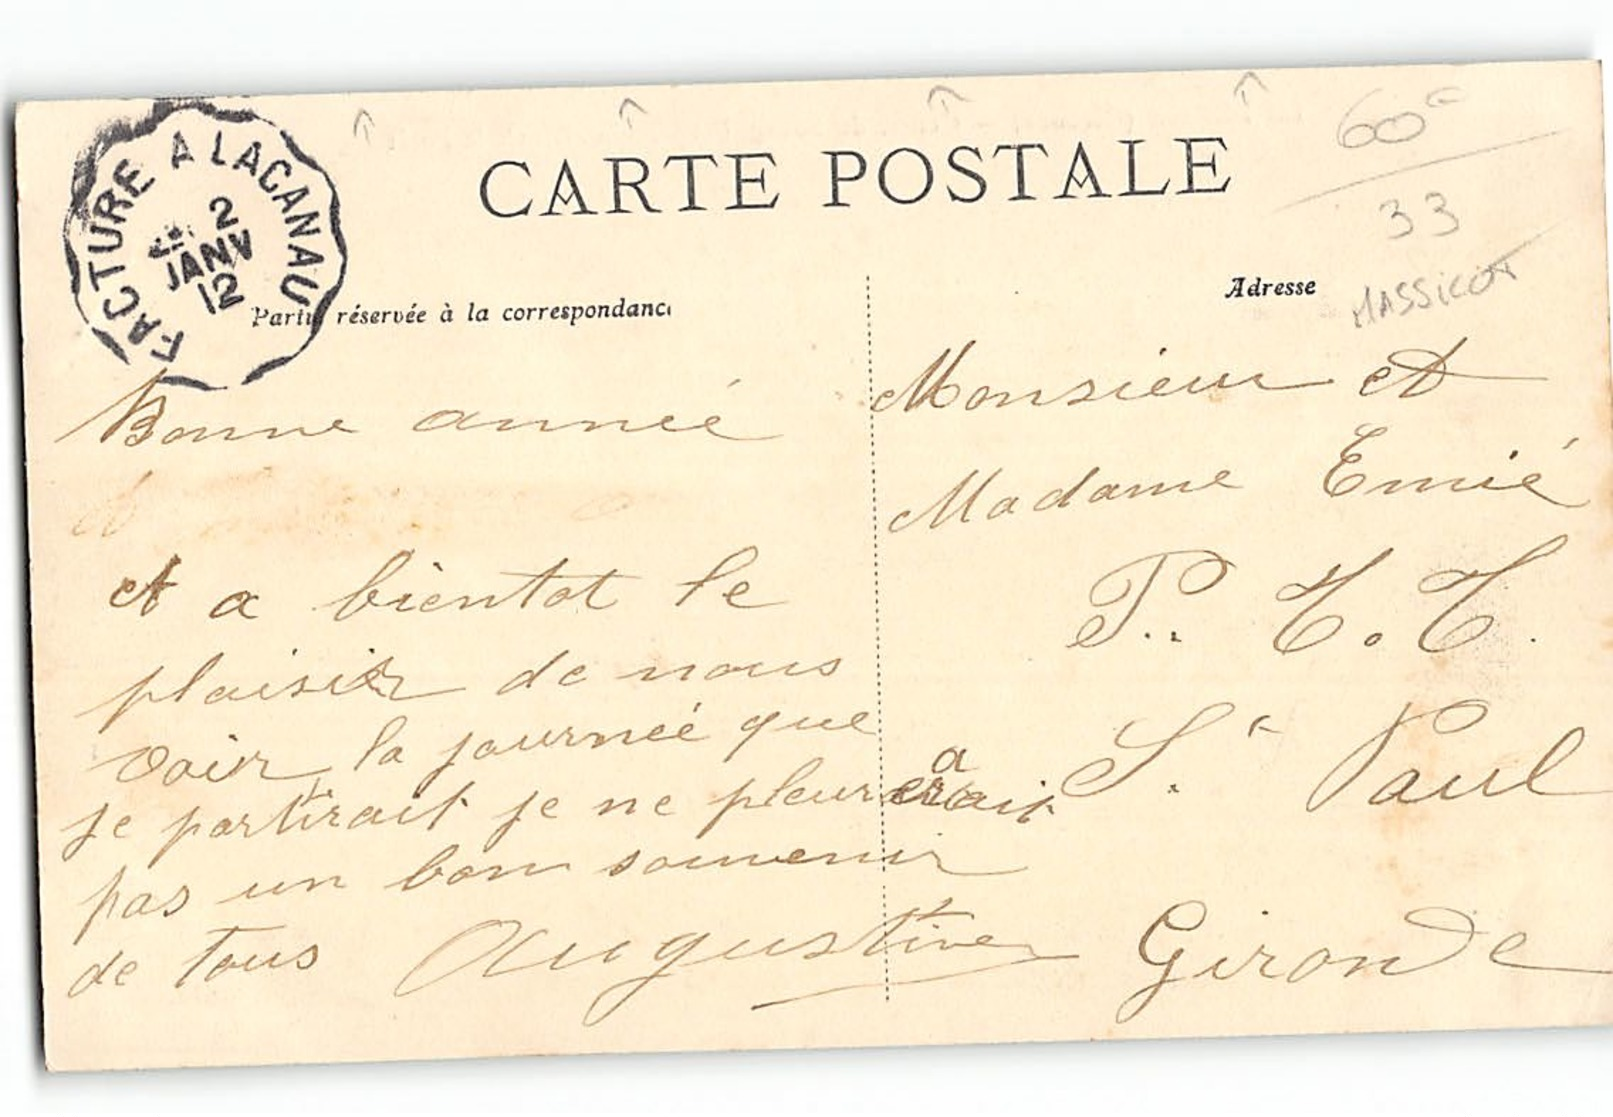 FACTURE A LACANAU
2
JANV
12
CARTE POSTALE
60
33
MASSICOT
Partie réservée à la correspondance
Adresse
Bonne année
et a bientot le
plaisir de nous
voir la journeé que
je partirait je ne pleurerait
a
pas un bon souvenir
de tous Augustine
Monsieur et
Madame Emié
P. T. T.
St Paul
Gironde